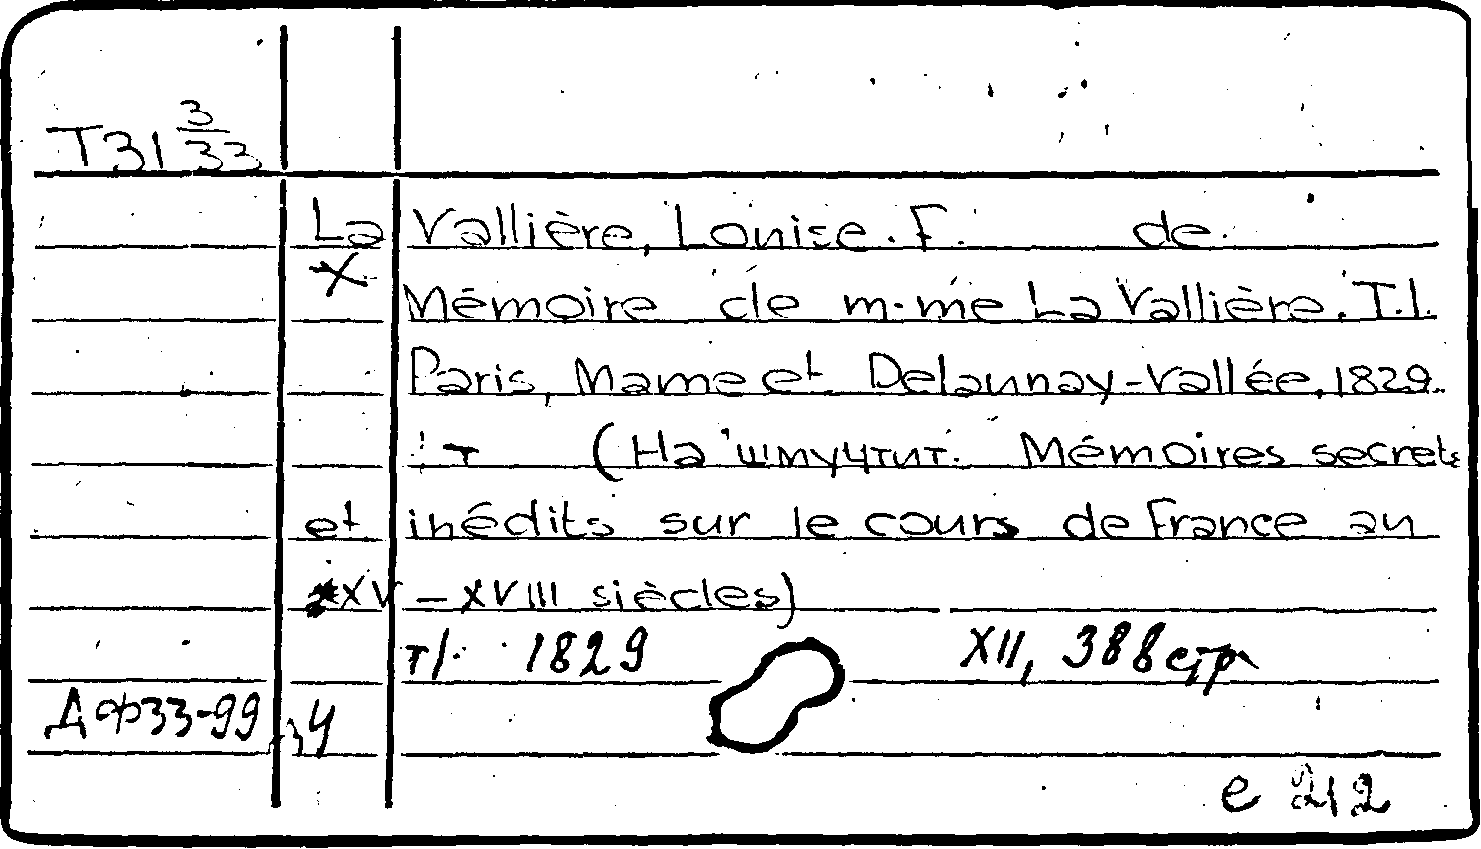 Т31 3/33
La Vallière, Louise. F. de.
X
Mémoire de m-me La Vallière. T.I.
Paris, Mame et Delaunay-Vallée, 1829.
т (На шмуцтит. Mémoires secrets
et inédits sur le cours de France au
XV – XVIII siècles)
т/. 1829 XII, 388 стр
ДФ33-99
e 212